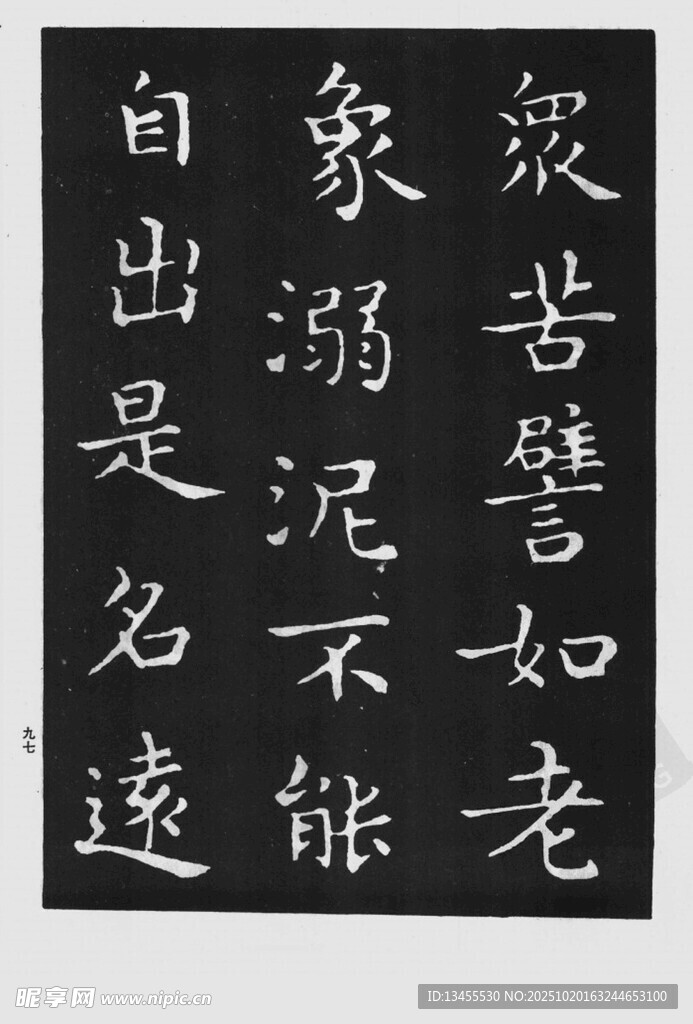 眾苦譬如老
象溺泥不能
自出是名遠
九七
昵享网 www.nipic.cn
ID:13455530 NO:20251020163244653100